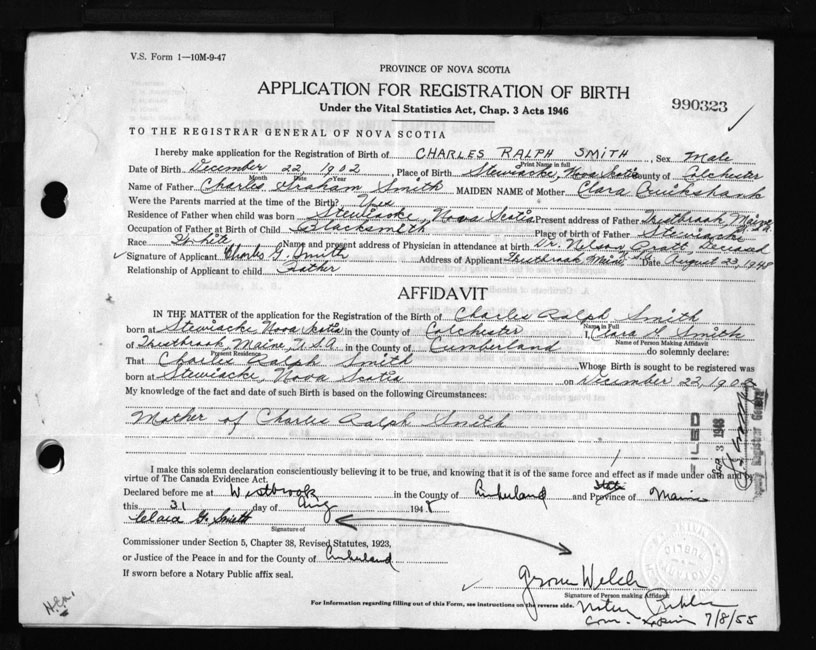 V.S. Form 1—10M-9-47
PROVINCE OF NOVA SCOTIA
APPLICATION FOR REGISTRATION OF BIRTH
Under the Vital Statistics Act, Chap. 3 Acts 1946
990323
TO THE REGISTRAR GENERAL OF NOVA SCOTIA
I hereby make application for the Registration of Birth of CHARLES RALPH SMITH, Sex Male
Print Name in full
Date of Birth December 22, 1902, Place of Birth Stewiacke, Nova Scotia County of Colchester
Month Date Year
Name of Father Charles Graham Smith MAIDEN NAME of Mother Clara Cruikshank
Were the Parents married at the time of the Birth? Yes
Residence of Father when child was born Stewiacke, Nova Scotia Present address of Father Westbrook, Maine
Occupation of Father at Birth of Child Blacksmith Place of birth of Father Stewiacke
Race White Name and present address of Physician in attendance at birth Dr. Nelson Pratt, Deceased
Signature of Applicant Charles G. Smith Address of Applicant Westbrook, Maine Date August 23, 1948
Relationship of Applicant to child Father
AFFIDAVIT
IN THE MATTER of the application for the Registration of the Birth of Charles Ralph Smith
Name in Full
born at Stewiacke, Nova Scotia in the County of Colchester I, Clara G. Smith
Name of Person Making Affidavit
of Westbrook, Maine, U.S.A. in the County of Cumberland do solemnly declare:
Present Residence
That Charles Ralph Smith Whose Birth is sought to be registered was
born at Stewiacke, Nova Scotia on December 22, 1902
My knowledge of the fact and date of such Birth is based on the following Circumstances:
Mother of Charles Ralph Smith
FILED
SEP 3 1948
I make this solemn declaration conscientiously believing it to be true, and knowing that it is of the same force and effect as if made under oath and by
virtue of The Canada Evidence Act.
Declared before me at Westbrook in the County of Cumberland and State Province of Maine
this 31 day of Aug 1948
Clara G. Smith
Signature of
Commissioner under Section 5, Chapter 38, Revised Statutes, 1923,
or Justice of the Peace in and for the County of Cumberland
If sworn before a Notary Public affix seal.
Welch
Signature of Person making Affidavit
For Information regarding filling out of this Form, see instructions on the reverse side.
Notary Public
Com. Expires 7/8/55